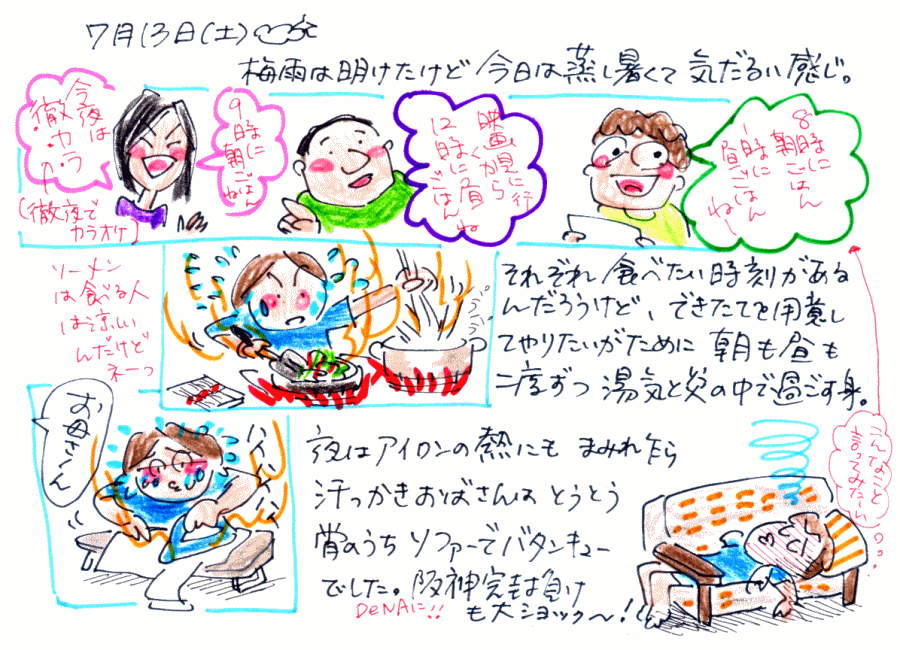 7月13日(土)
梅雨は明けたけど 今日は蒸し暑くて 気だるい感じ。
今夜は
徹・カラ
(徹夜で
カラオケ)
9時に
朝ごはん
ね
映画見に行
くから
12時に昼
ごはん
ね
8時に
朝ごはん
1時に
昼ごはん
ねー
ソーメン
は食べる人
は涼しい
んだけど
ネーっ
それぞれ 食べたい時刻がある
んだろうけど、できたてを用意し
てやりたいがために 朝も昼も
二度ずつ 湯気と炎の中で過ごす身。
こんなこと
言ってみたーい
お母さーん
ハイハイ
夜はアイロンの熱にも まみれたら
汗っかきおばさんは とうとう
宵のうち ソファーでバタンキュー
でした。阪神完封負け
DeNAに!!
も大ショック〜!